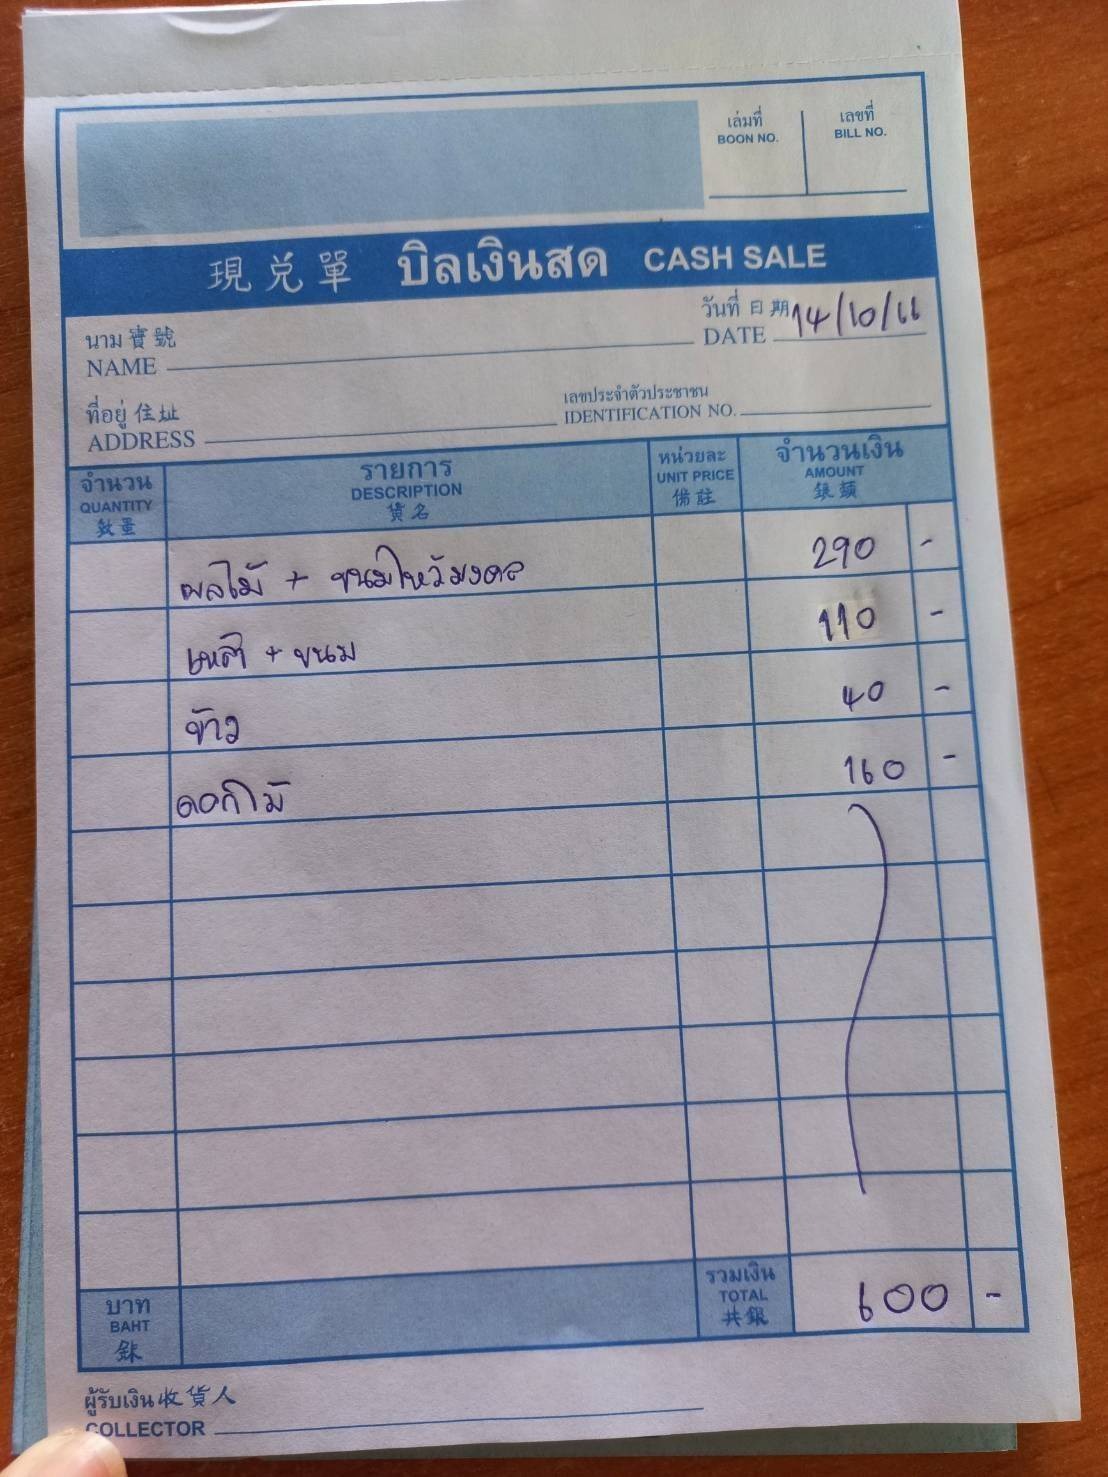 เล่มที่ เลขที่
BOON NO. BILL NO.
現兌單 บิลเงินสด CASH SALE
นาม寶號 วันที่ 日期
NAME DATE 14/10/66
ที่อยู่ 住址 เลขประจำตัวประชาชน
ADDRESS IDENTIFICATION NO.
จำนวน รายการ หน่วยละ จำนวนเงิน
QUANTITY DESCRIPTION UNIT PRICE AMOUNT
數量 貨名 備註 銀額
ผลไม้ + ขนมไหว้มงคล 290 -
เหล้า + ขนม 110 -
ข้าว 40 -
ดอกไม้ 160 -
บาท รวมเงิน
BAHT TOTAL 600 -
銖 共銀
ผู้รับเงิน收貨人
COLLECTOR